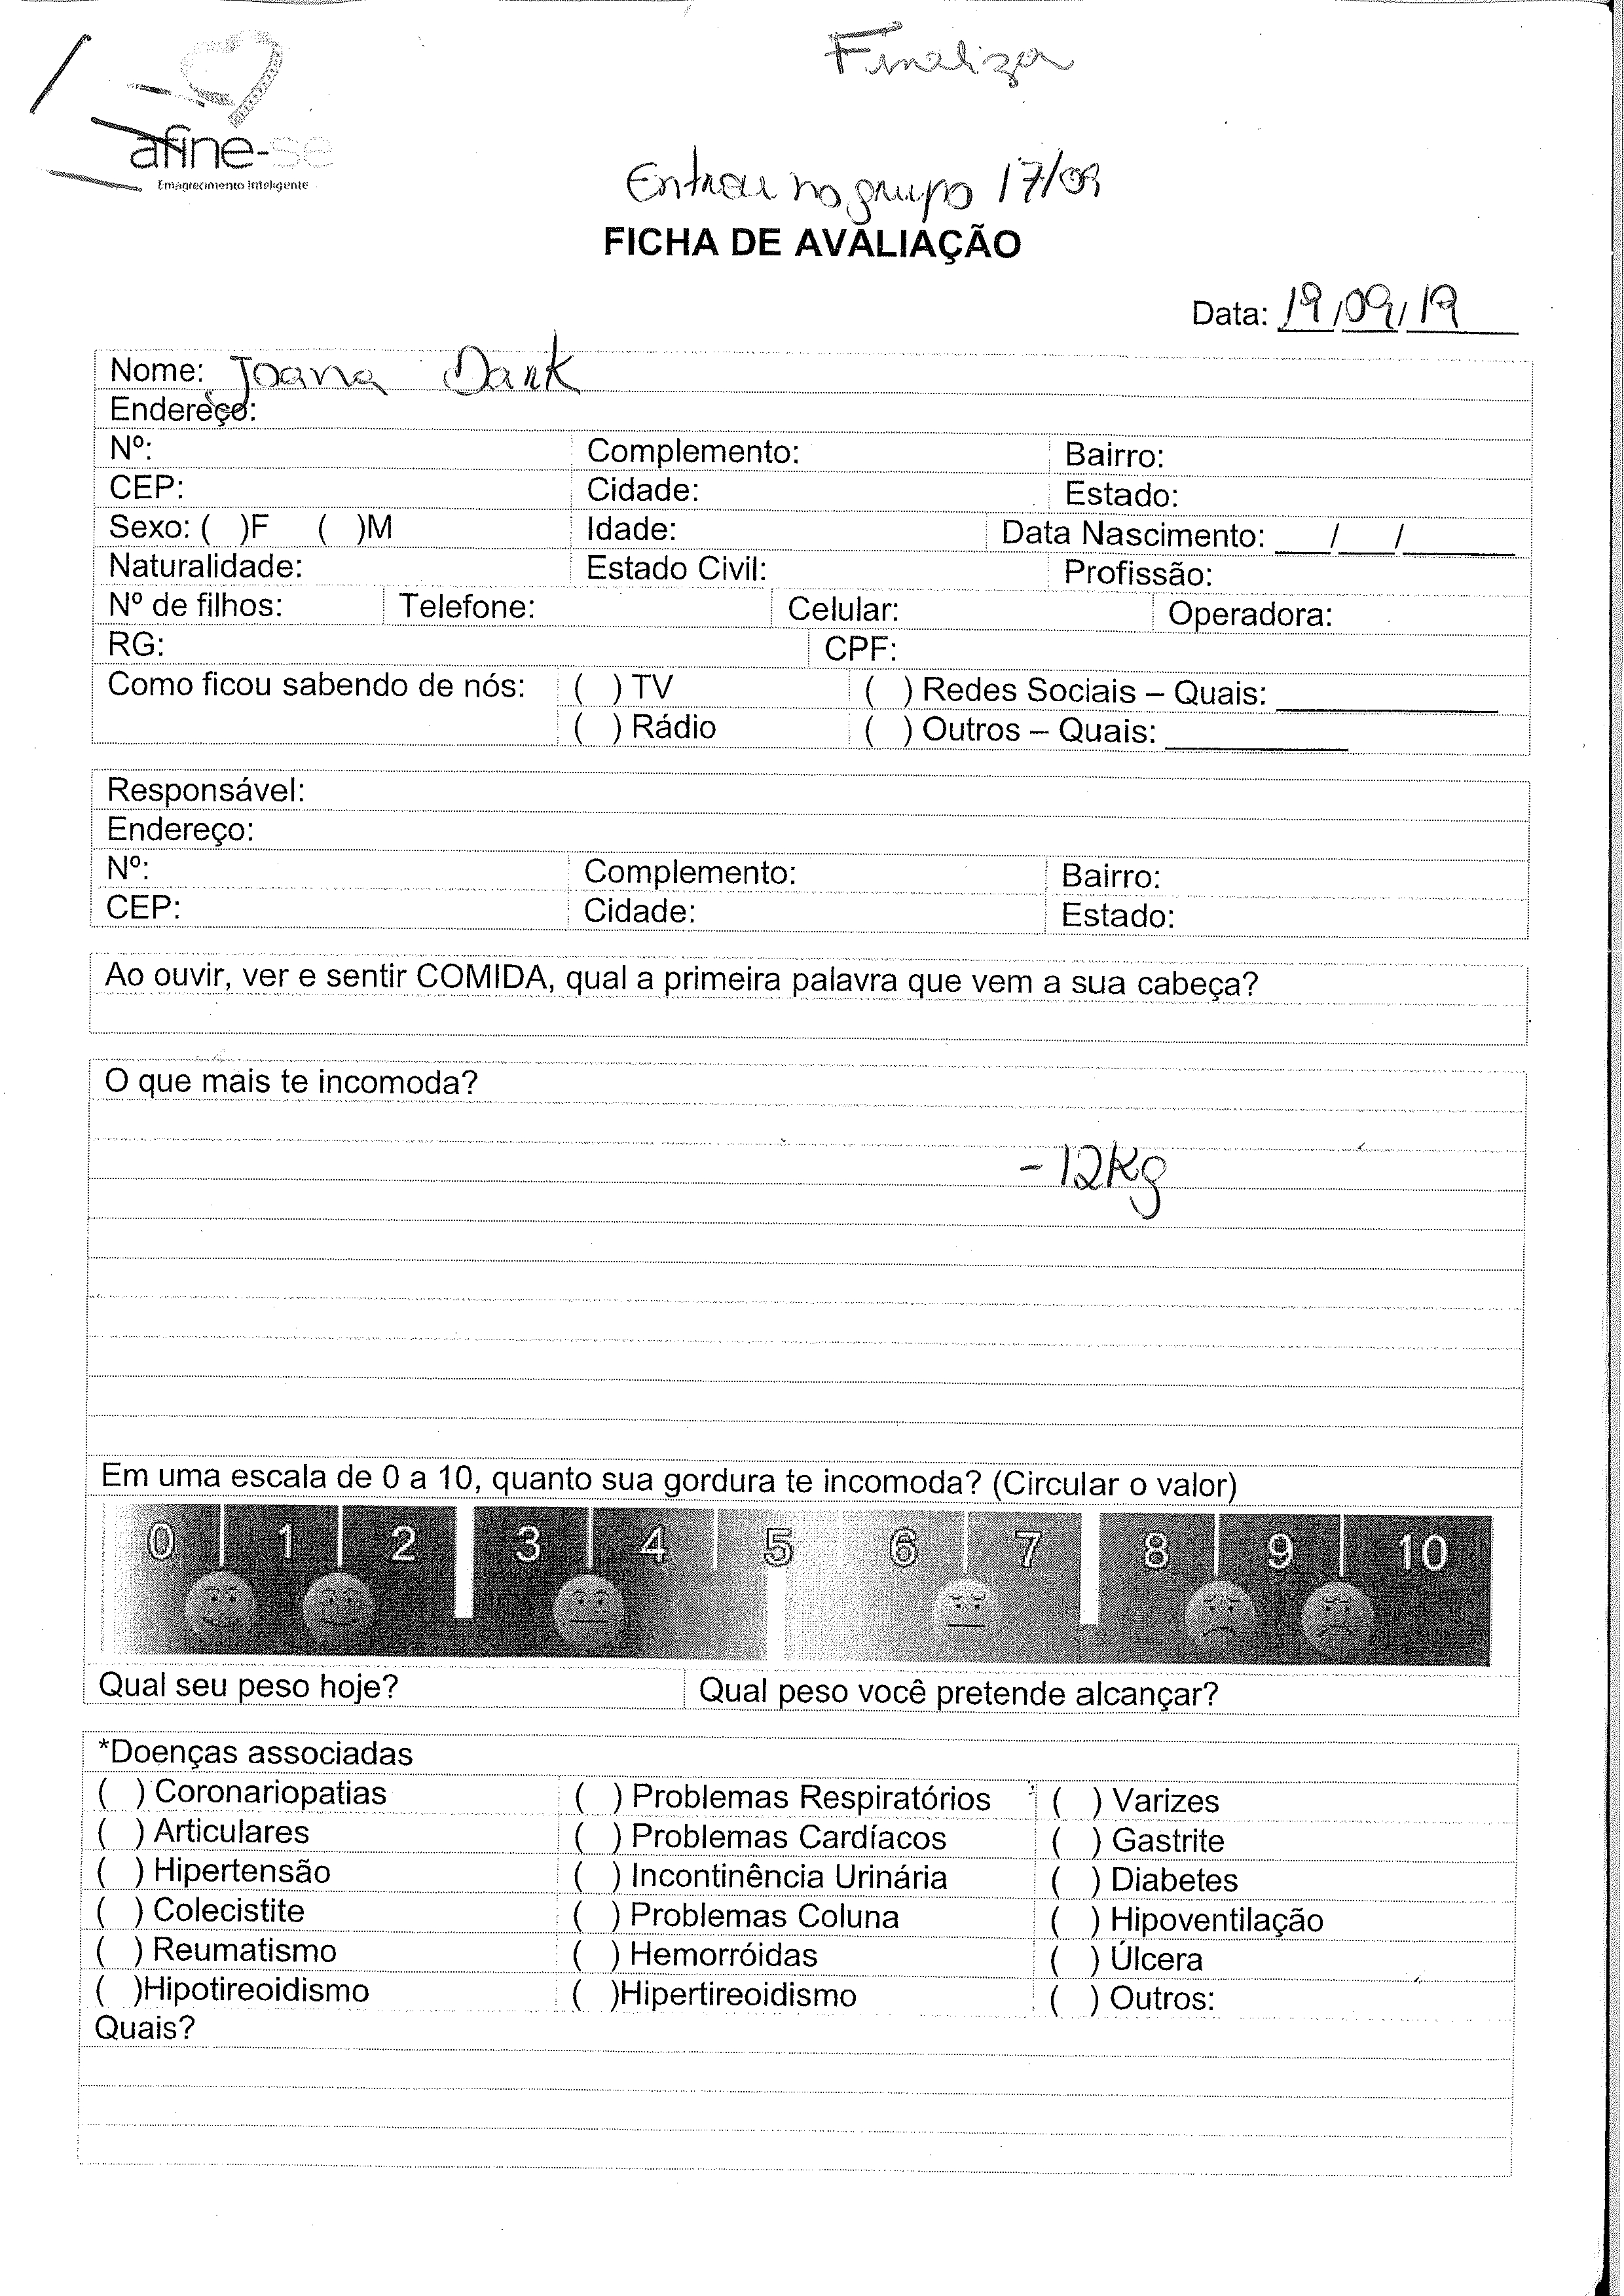 Finalizar
afine-se
Emagrecimento Inteligente
Entrou no grupo 17/09
FICHA DE AVALIAÇÃO
Data: 19/09/19
Nome: Joana Dark
Endereço:
Nº: Complemento: Bairro:
CEP: Cidade: Estado:
Sexo: ( )F ( )M Idade: Data Nascimento: ___/___/______
Naturalidade: Estado Civil: Profissão:
Nº de filhos: Telefone: Celular: Operadora:
RG: CPF:
Como ficou sabendo de nós: ( ) TV ( ) Redes Sociais – Quais: ____________
( ) Rádio ( ) Outros – Quais: __________
Responsável:
Endereço:
Nº: Complemento: Bairro:
CEP: Cidade: Estado:
Ao ouvir, ver e sentir COMIDA, qual a primeira palavra que vem a sua cabeça?
O que mais te incomoda?
- 12Kg
Em uma escala de 0 a 10, quanto sua gordura te incomoda? (Circular o valor)
0 1 2 3 4 5 6 7 8 9 10
Qual seu peso hoje? Qual peso você pretende alcançar?
*Doenças associadas
( ) Coronariopatias ( ) Problemas Respiratórios ( ) Varizes
( ) Articulares ( ) Problemas Cardíacos ( ) Gastrite
( ) Hipertensão ( ) Incontinência Urinária ( ) Diabetes
( ) Colecistite ( ) Problemas Coluna ( ) Hipoventilação
( ) Reumatismo ( ) Hemorróidas ( ) Úlcera
( )Hipotireoidismo ( )Hipertireoidismo ( ) Outros:
Quais?